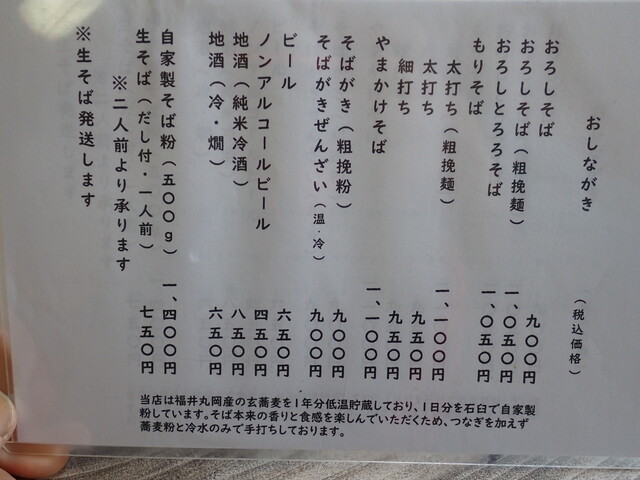 おしながき
(税込価格)
おろしそば 九〇〇円
おろしそば(粗挽麺) 一、〇五〇円
おろしとろろそば 一、〇五〇円
もりそば
太打ち(粗挽麺) 一、一〇〇円
太打ち 九五〇円
細打ち 九五〇円
やまかけそば 一、一〇〇円
そばがき(粗挽粉) 九〇〇円
そばがきぜんざい(温・冷) 九〇〇円
ビール 六五〇円
ノンアルコールビール 四五〇円
地酒(純米冷酒) 八五〇円
地酒(冷・燗) 六五〇円
自家製そば粉(五〇〇g) 一、四〇〇円
生そば(だし付・一人前) 七五〇円
※二人前より承ります
※生そば発送します
当店は福井丸岡産の玄蕎麦を1年分低温貯蔵しており、1日分を石臼で自家製
粉しています。そば本来の香りと食感を楽しんでいただくため、つなぎを加えず
蕎麦粉と冷水のみで手打ちしております。